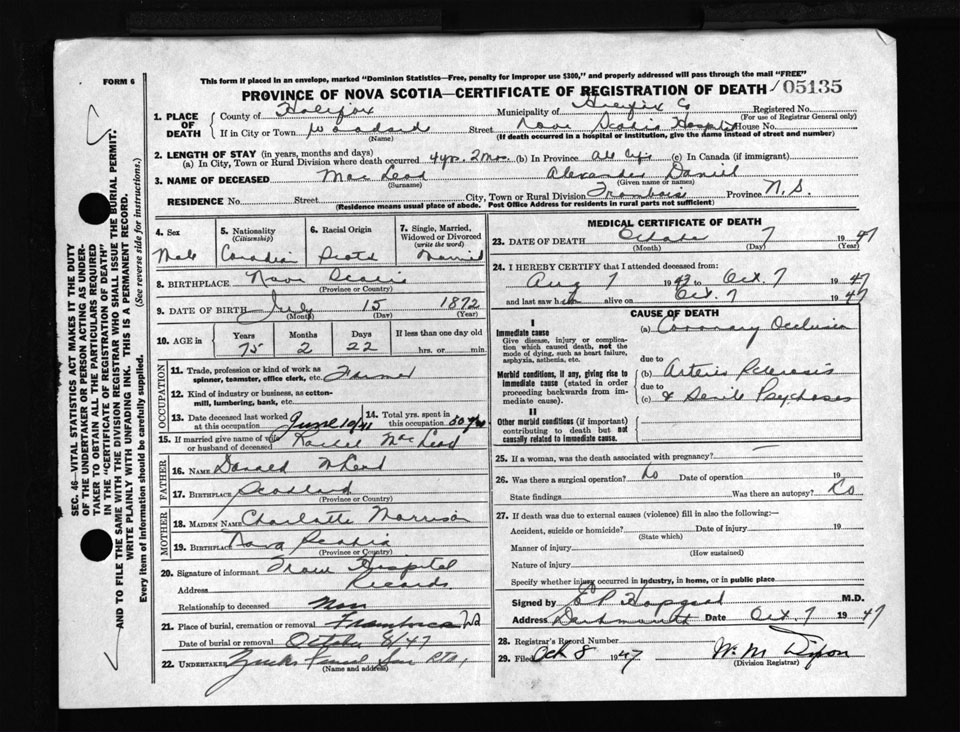 FORM 6
This form if placed in an envelope, marked "Dominion Statistics—Free, penalty for improper use $300," and properly addressed will pass through the mail "FREE"
PROVINCE OF NOVA SCOTIA—CERTIFICATE OF REGISTRATION OF DEATH 05135
SEC. 46—VITAL STATISTICS ACT MAKES IT THE DUTY
OF THE UNDERTAKER OR PERSON ACTING AS UNDER-
TAKER TO OBTAIN ALL THE PARTICULARS REQUIRED
IN THE "CERTIFICATE OF REGISTRATION OF DEATH"
AND TO FILE THE SAME WITH THE DIVISION REGISTRAR WHO SHALL ISSUE THE BURIAL PERMIT.
WRITE PLAINLY WITH UNFADING INK. THIS IS A PERMANENT RECORD.
Every item of Information should be carefully supplied. (See reverse side for instructions.)
1. PLACE OF DEATH County of Halifax Municipality of Halifax Co Registered No.
(For use of Registrar General only)
If in City or Town Street Nova Scotia Hospital House No.
(Name) (If death occurred in a hospital or institution, give the name instead of street and number)
2. LENGTH OF STAY (in years, months and days)
(a) In City, Town or Rural Division where death occurred 4 yrs. 2 mos. (b) In Province All life (c) In Canada (if immigrant)
3. NAME OF DECEASED MacLeod Alexander Daniel
(Surname) (Given name or names)
RESIDENCE No. Street City, Town or Rural Division Framboise Province N.S.
(Residence means usual place of abode. Post Office Address for residents in rural parts not sufficient)
4. Sex Male
5. Nationality (Citizenship) Canadian
6. Racial Origin Scotch
7. Single, Married, Widowed or Divorced (write the word) Married
8. BIRTHPLACE Nova Scotia
(Province or Country)
9. DATE OF BIRTH July 15 1872
(Month) (Day) (Year)
10. AGE in Years Months Days If less than one day old
75 2 22 hrs. or min.
OCCUPATION
11. Trade, profession or kind of work as spinner, teamster, office clerk, etc. Farmer
12. Kind of industry or business, as cotton-mill, lumbering, bank, etc.
13. Date deceased last worked at this occupation June 10/41
14. Total yrs. spent in this occupation 50 yrs
15. If married give name of wife or husband of deceased MacLeod
FATHER
16. NAME Donald McLeod
17. BIRTHPLACE Scotland
(Province or Country)
MOTHER
18. MAIDEN NAME Charlotte Morrison
19. BIRTHPLACE Nova Scotia
(Province or Country)
20. Signature of informant From Hospital
Address Records
Relationship to deceased None
21. Place of burial, cremation or removal Framboise
Date of burial or removal October 8/47
22. UNDERTAKER
(Name and address)
MEDICAL CERTIFICATE OF DEATH
23. DATE OF DEATH October 7 1947
(Month) (Day) (Year)
24. I HEREBY CERTIFY that I attended deceased from:
Aug 7 1943 to Oct. 7 1947
and last saw him alive on Oct. 7 1947
CAUSE OF DEATH
I
Immediate cause
Give disease, injury or complication which caused death, not the mode of dying, such as heart failure, asphyxia, asthenia, etc.
(a) Coronary Occlusion
due to
Morbid conditions, if any, giving rise to immediate cause (stated in order proceeding backwards from immediate cause).
(b) Arterio Sclerosis
due to
(c) & Senile Psychoses
II
Other morbid conditions (if important) contributing to death but not causally related to immediate cause.
25. If a woman, was the death associated with pregnancy?
26. Was there a surgical operation? No Date of operation 19
State findings Was there an autopsy? No
27. If death was due to external causes (violence) fill in also the following:—
Accident, suicide or homicide? Date of injury 19
(State which)
Manner of injury
(How sustained)
Nature of injury
Specify whether injury occurred in industry, in home, or in public place
Signed by M.D.
Address Dartmouth Date Oct. 7 1947
28. Registrar's Record Number
29. Filed Oct 8 1947 Wm M Dixon
(Division Registrar)